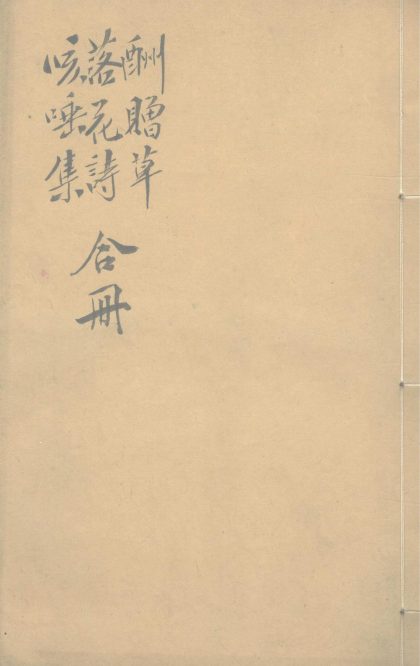 酬贈草
落花詩
咳唾集
合冊